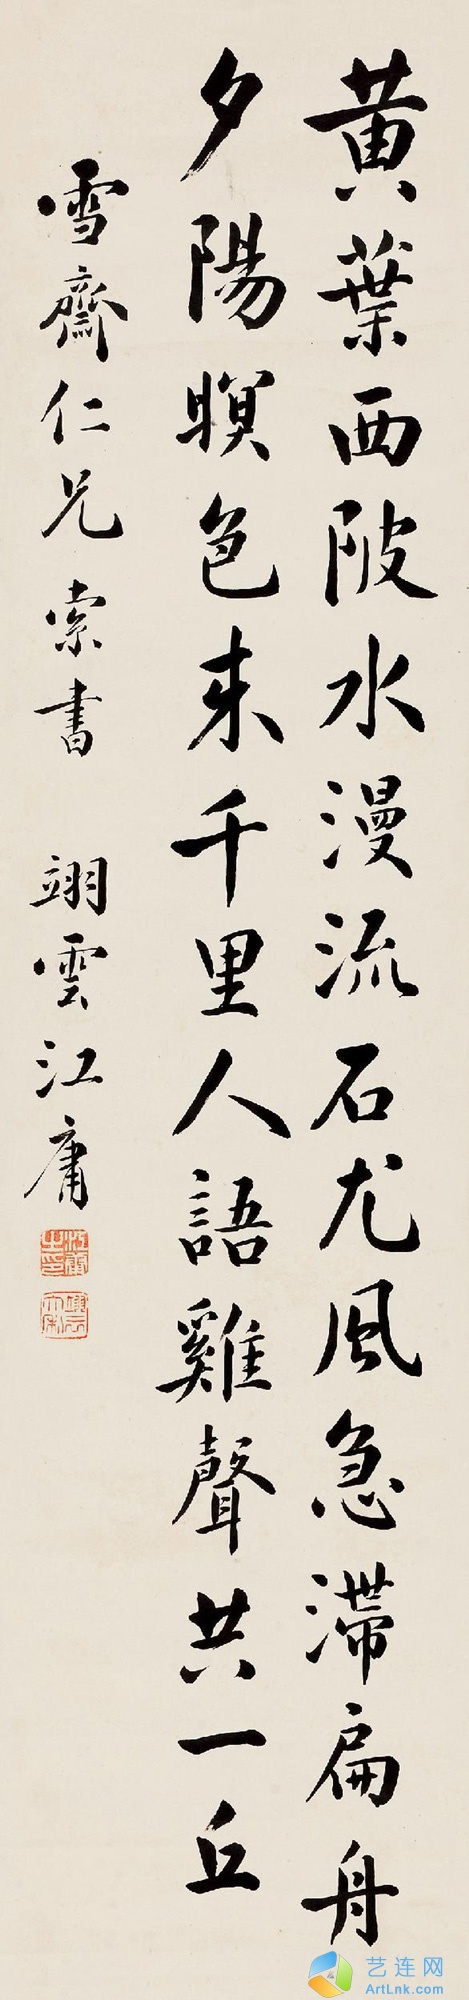 黄葉西陂水漫流石尤風急滯扁舟
夕陽暝色来千里人語雞聲共一丘
雪齋仁兄索書 翊雲江庸
江庸之印
艺连网
ArtLnk.com